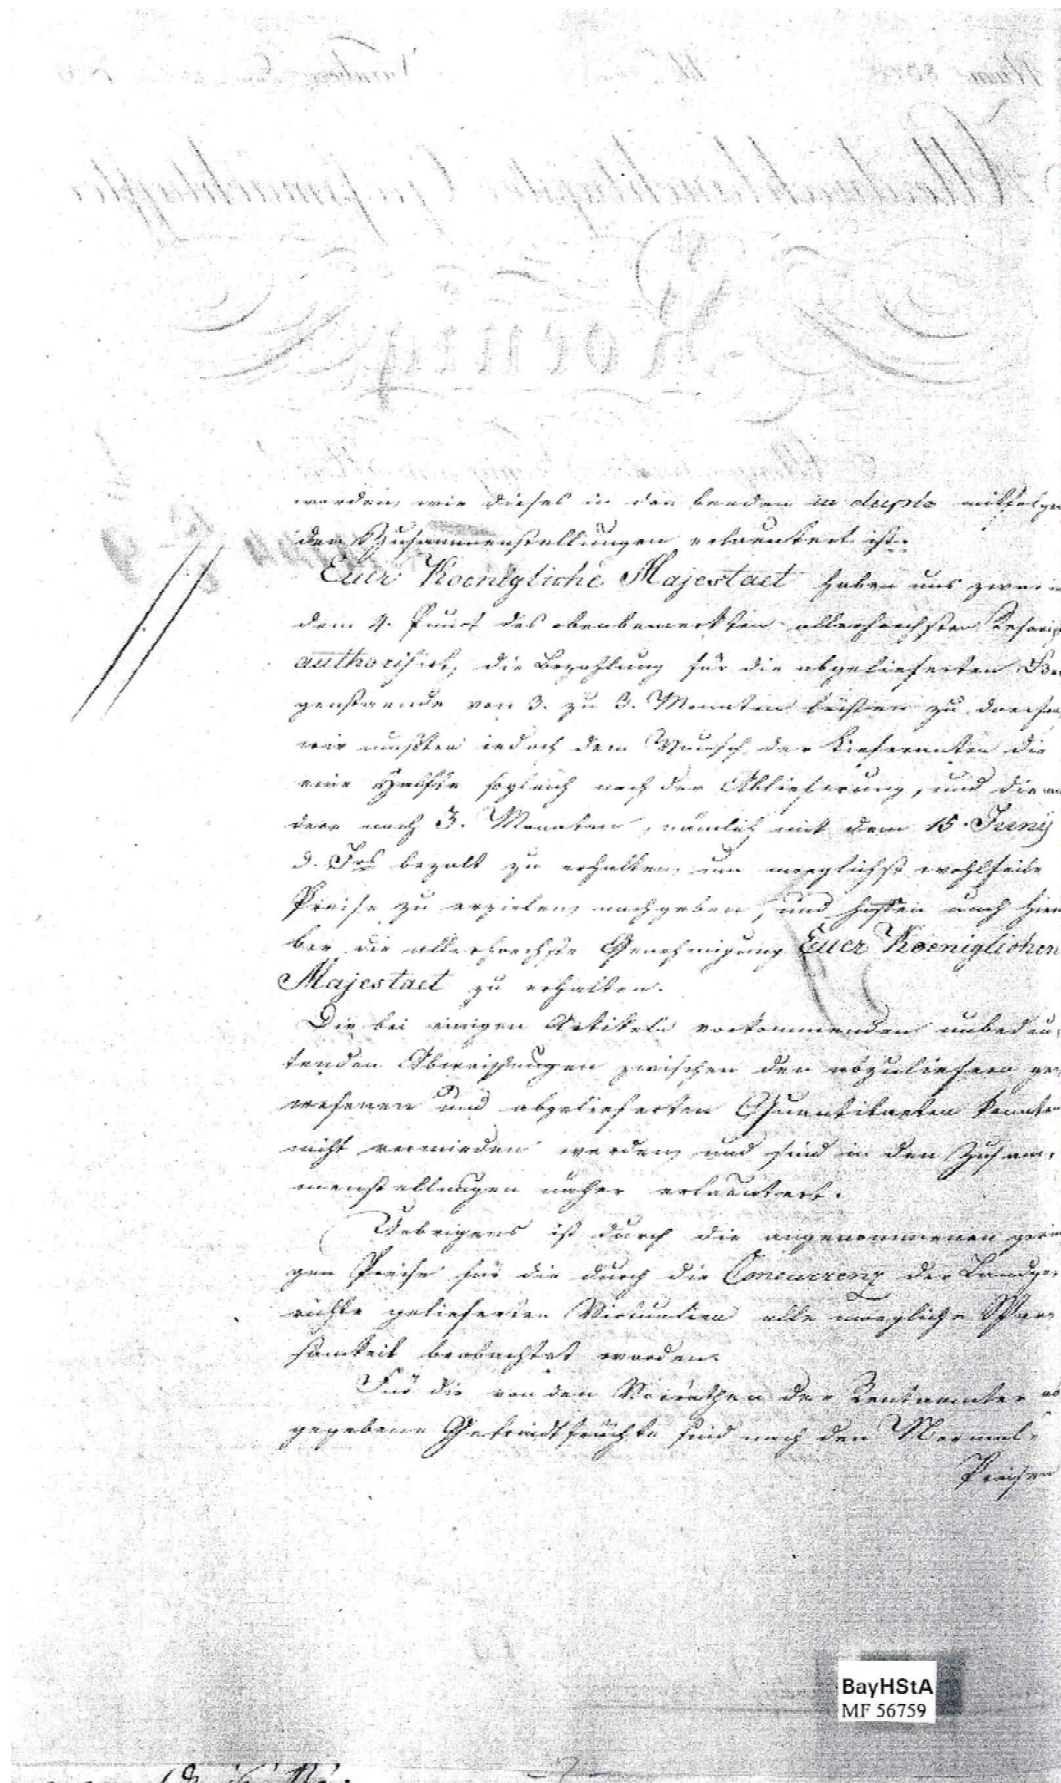 worden, wie dieses in den beeden in duplo mitfolgen
den Zusammenstellungen erlaeutert ist.
Euer Koenigliche Majestaet haben uns zwar in
dem 4. Punct des obenbemerkten allerhoechsten Rescripts
authorisirt, die Bezahlung für die abgelieferten Ge
genstaende von 3. zu 3. Monaten leisten zu dürfen
wir mußten jedoch dem Wunsch der Lieferanten die
eine Helfte sogleich nach der Ablieferung, und die an
dere nach 3. Monaten, nämlich mit dem 15. Juny
d. Jrs bezalt zu erhalten, um moeglichst wohlfeile
Preise zu erzielen, nachgeben, und hoffen auch hier
ber die allerhoechste Genehmigung Euer Koeniglichen
Majestaet zu erhalten.
Die bei einigen Artikeln vorkommenden unbedeu,
tenden Abweichungen zwischen den abzuliefern ge,
wesenen und abgelieferten Quantitaeten konnten
nicht vermieden werden, und sind in den Zusam,
menstellungen näher erlaeutert.
Uebrigens ist durch die angenommenen gerin
gen Preise für die durch die Concurrenz der Landge,
richte gelieferten Victualien alle moegliche Spar
samkeit beobachtet worden.
Für die von den Vorräthen der Rentaemter ab
gegebene Getreidtfrüchte sind nach den Normal,
Preisen
Koenig
BayHStA
MF 56759